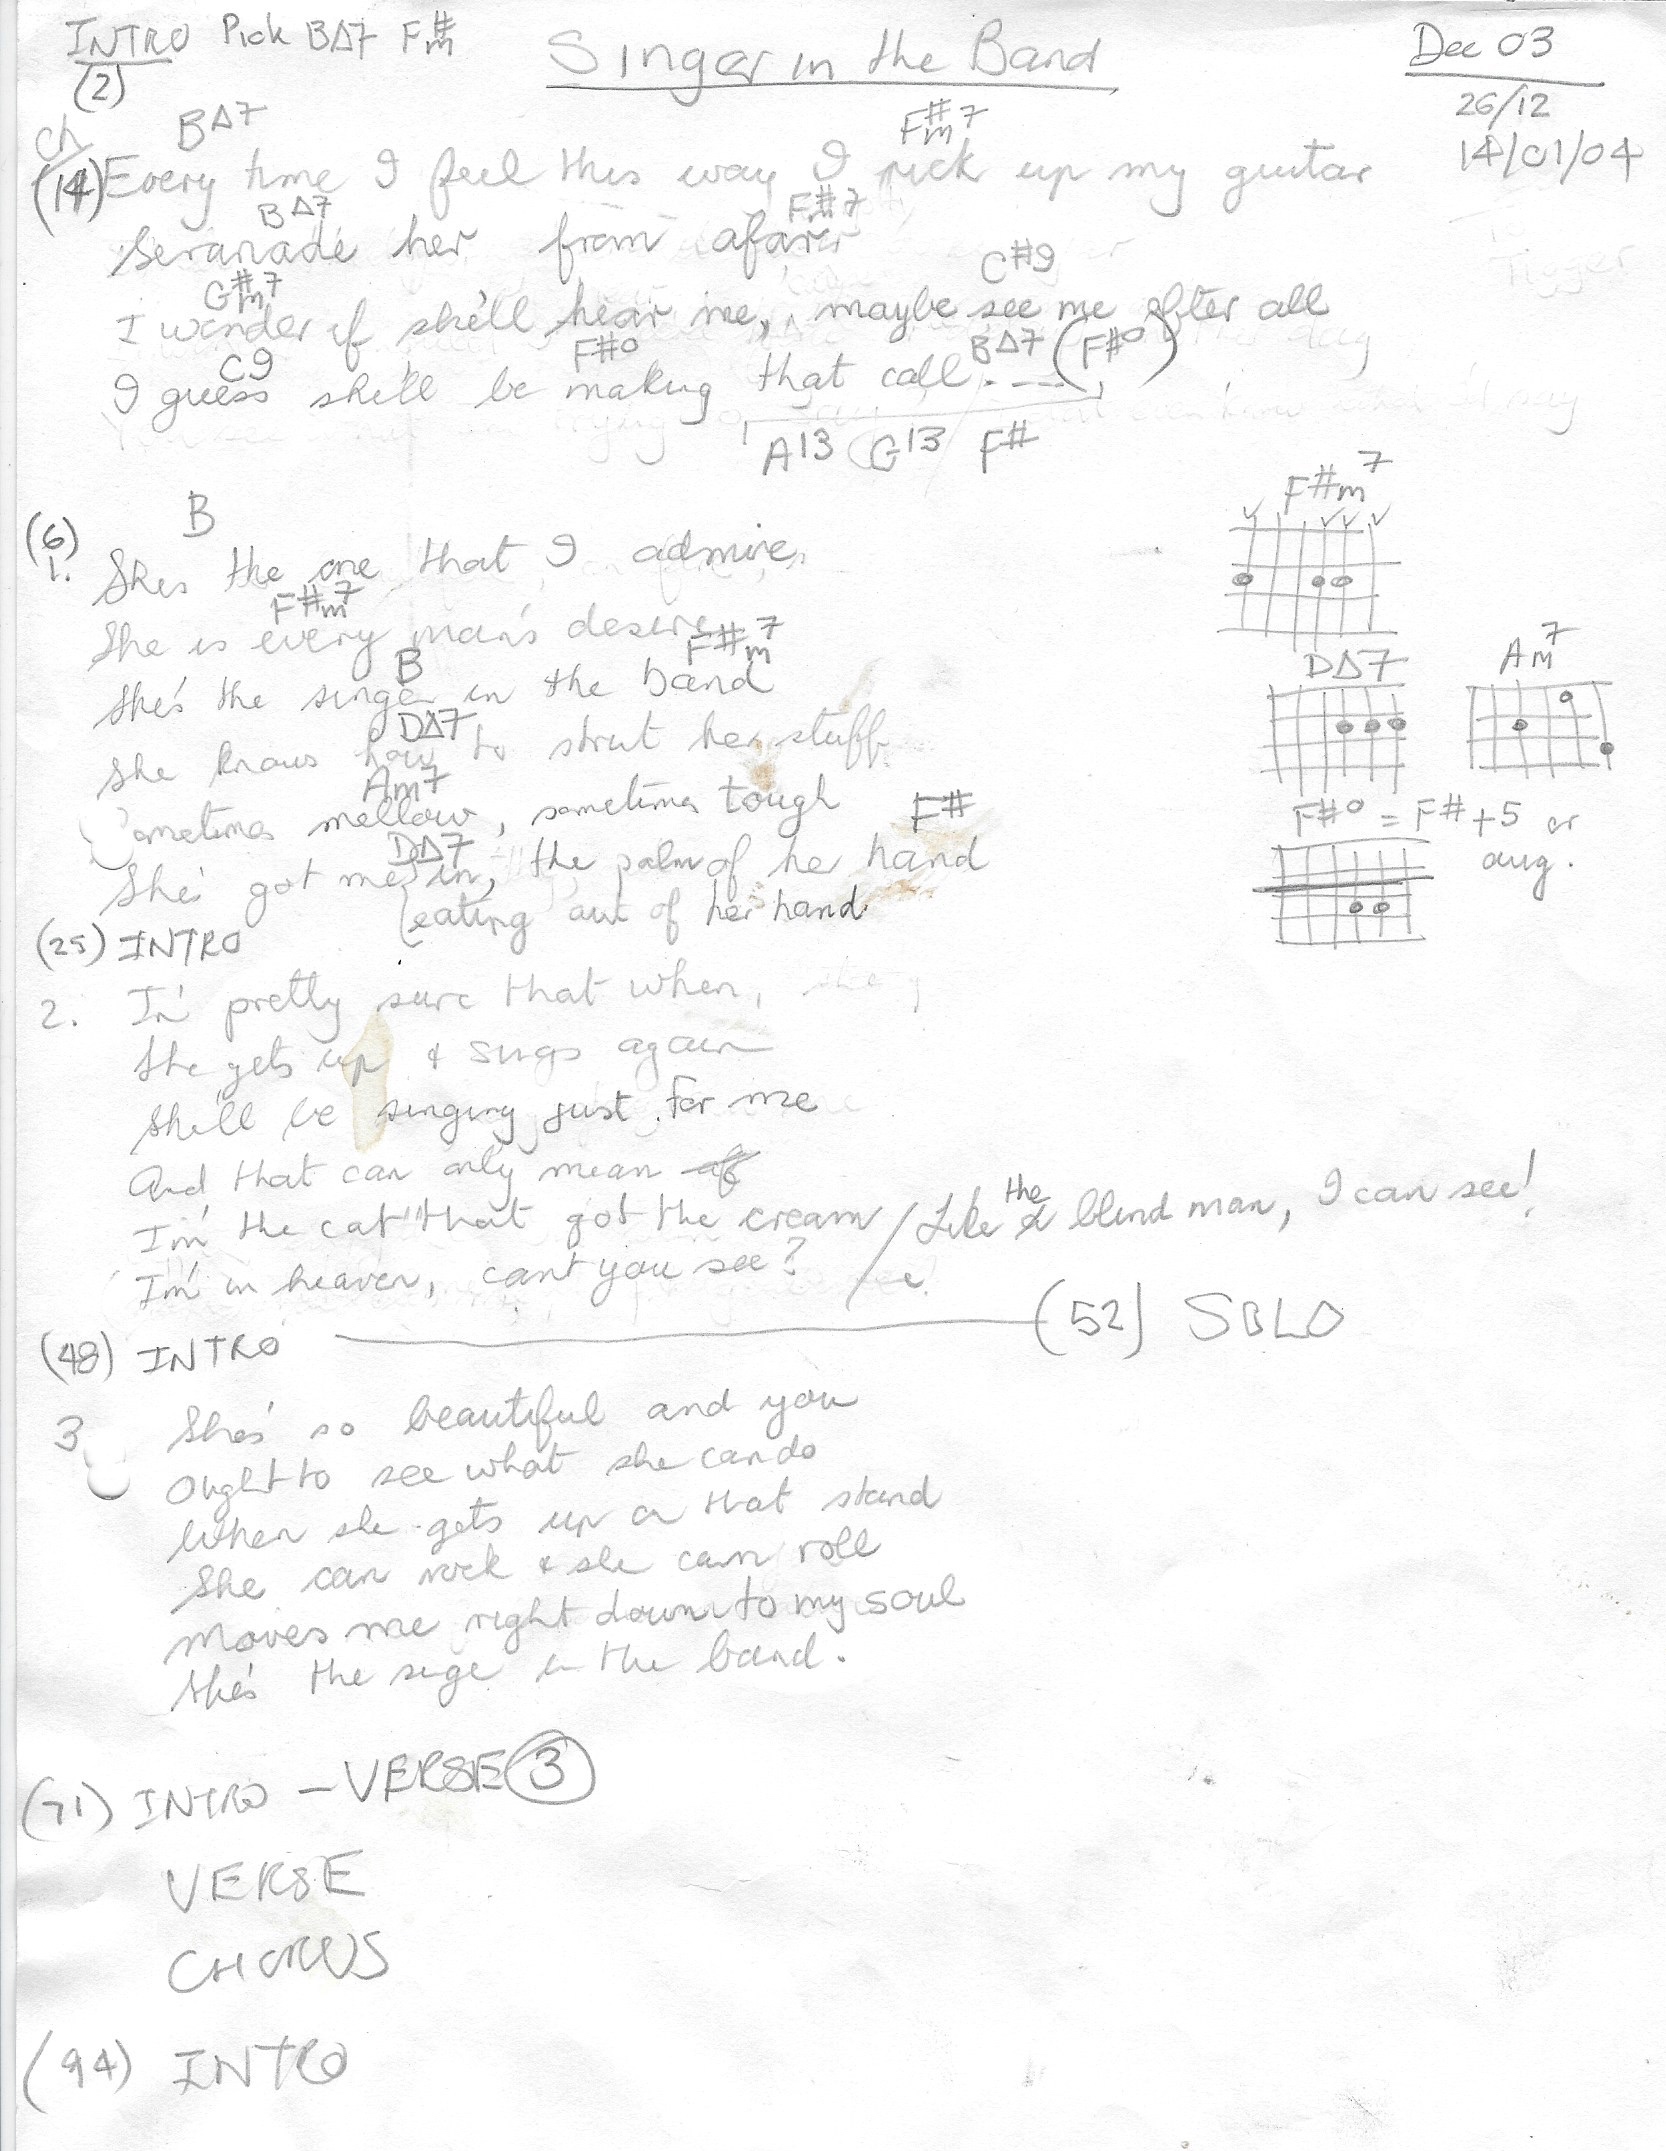 INTRO Pick B∆7 F#m
Singer in the Band
Dec 03
(2)
26/12
14/01/04
Ch
B∆7 F#m7
(14) Every time I feel this way I pick up my guitar
B∆7 F#7
Seranade her from afar
G#m7 C#9
I wonder if she'll hear me, maybe see me after all
C9 F#o B∆7 (F#o)
I guess she'll be making that call . ---
A13 G13 F#
(6) B
1. Shes the one that I admire
F#m7
She is every man's desire
B F#m7
She's the singer in the band
D∆7
She knows how to strut her stuff
Am7
Sometimes mellow, sometimes tough
D∆7 F#
She's got me { in, the palm of her hand
{ eating out of her hand
F#m7
D∆7 Am7
F#o = F#+5 or
aug.
(25) INTRO
2. I'm pretty sure that when,
She gets up & sings again
She'll be singing just for me
And that can only mean
I'm the cat that got the cream / Like the blind man, I can see!
I'm in heaven, cant you see?
(48) INTRO (52) SOLO
3 She's so beautiful and you
Ought to see what she can do
When she gets up on that stand
She can rock & she can roll
Moves me right down to my soul
She's the singer in the band.
(71) INTRO - VERSE 3
VERSE
CHORUS
(94) INTRO